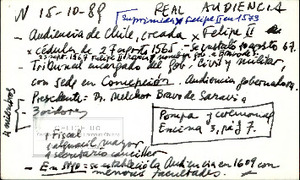 N 15-10-89 REAL AUDIENCIA
Suprimida x Felipe II en 1573
- Audiencia de Chile, creada x Felipe II
x cédula de 27 agosto 1565 - se instaló agosto 67.
- Tribunal encargado del gob. civil y militar,
con sede en Concepción - Audiencia gobernadora.
Presidente: Dr. Melchor Bravo de Saravia
4 miembros
3 oidores
1 Fiscal
1 alguacil mayor
1 secretario canciller
Pompa y ceremonial
Encina 3, pág 7.
- En Stgo se estableció la Audiencia en 1609 con
menores facultades.